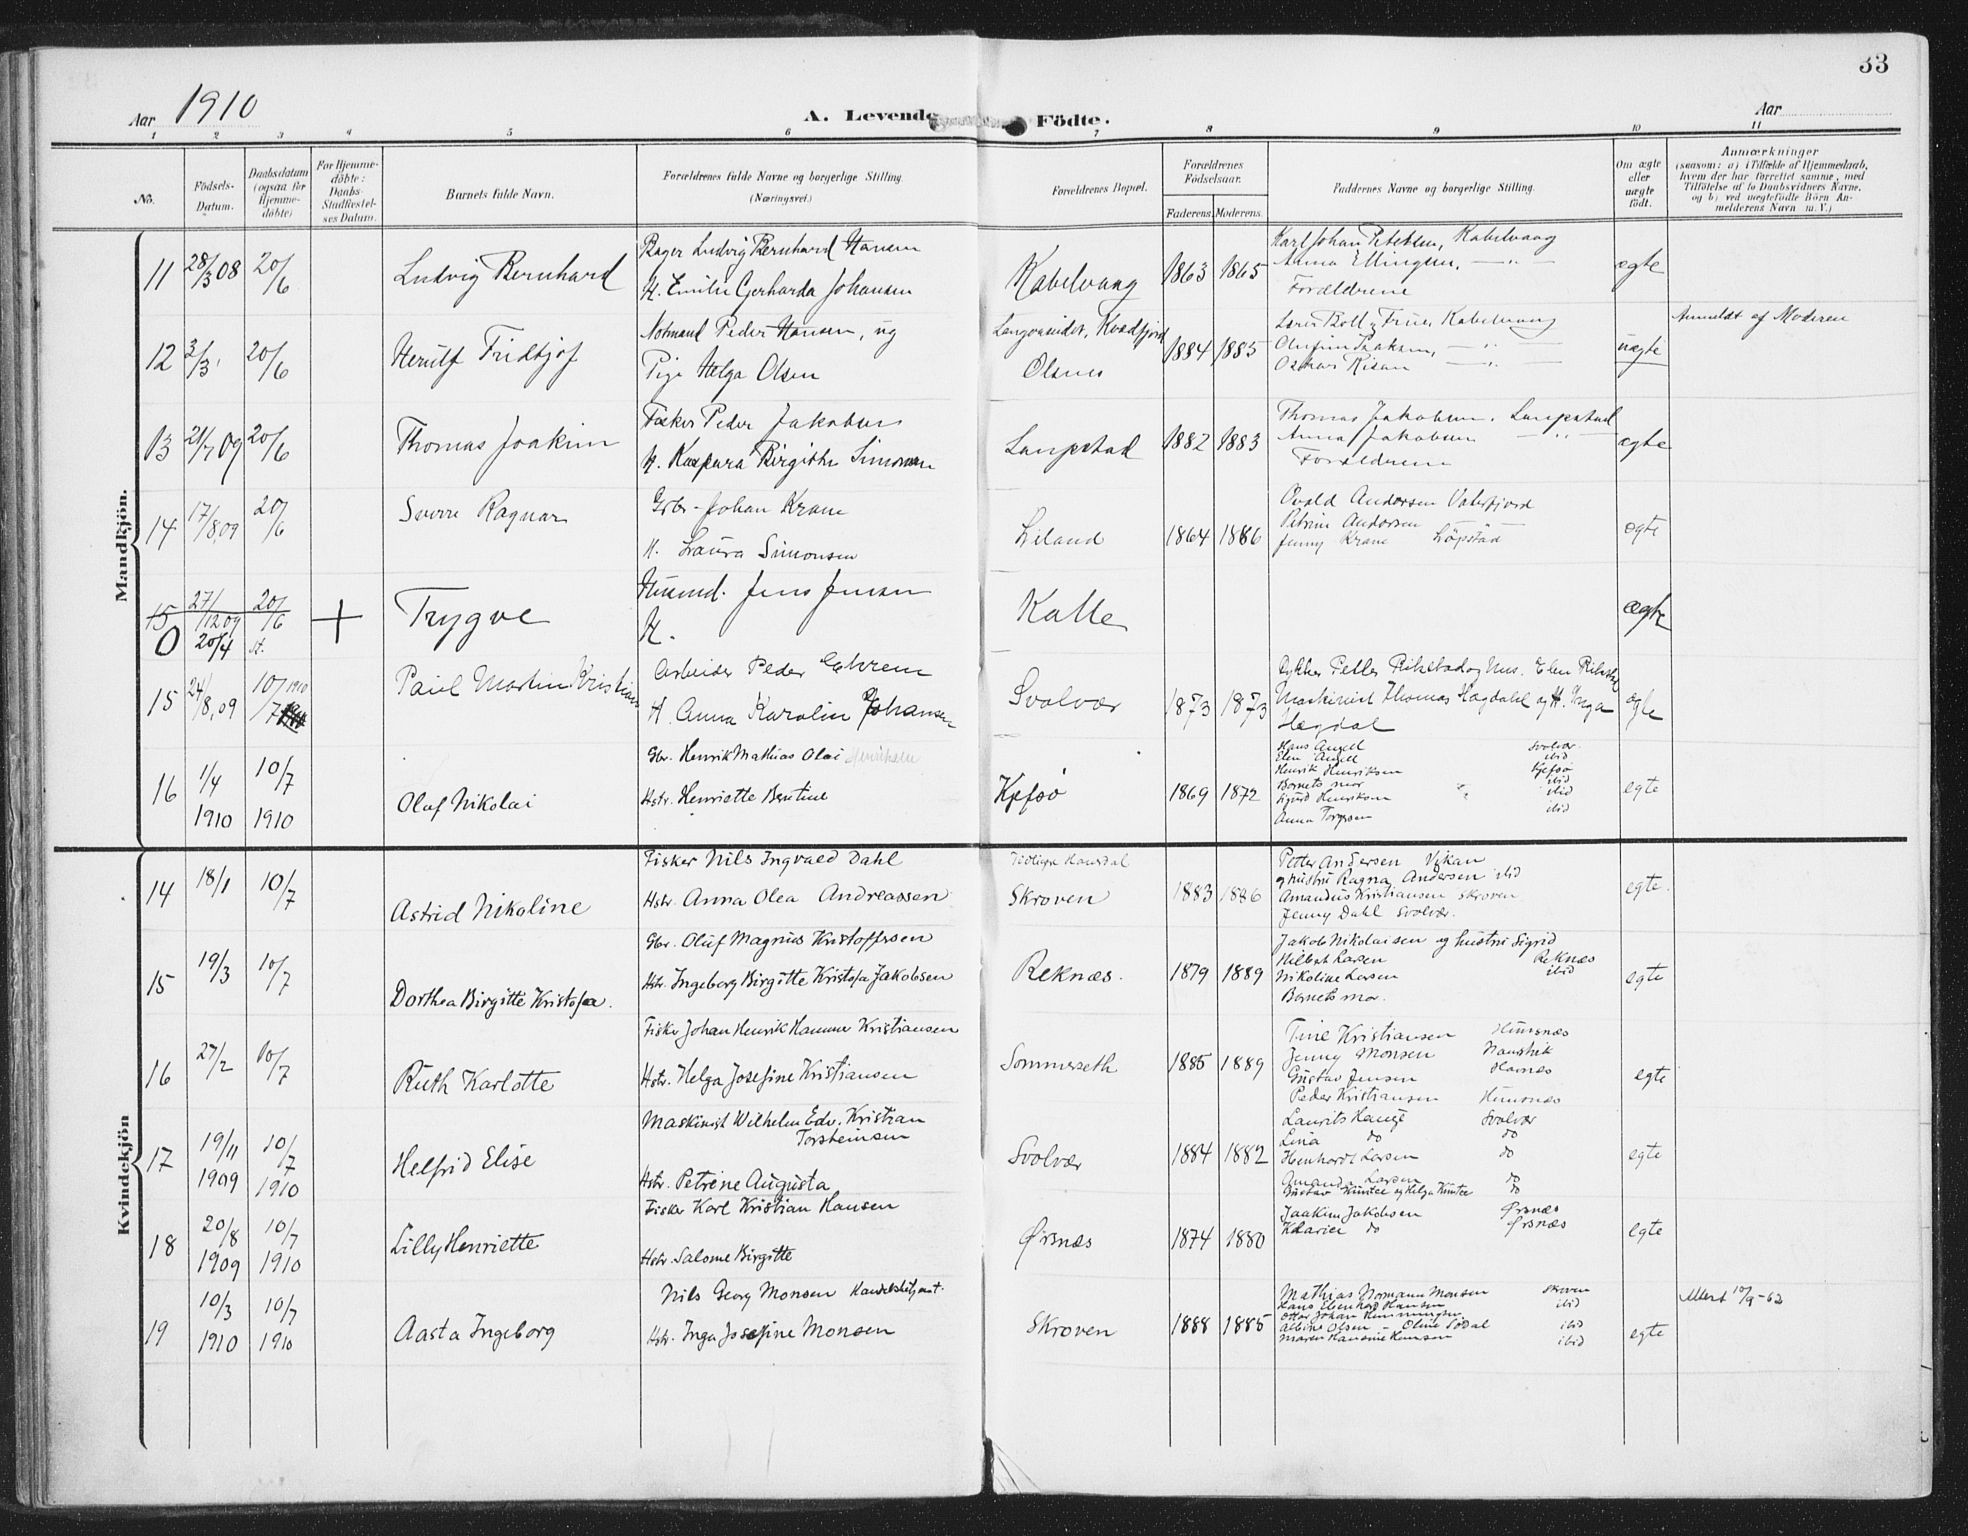 33
Aar 1910
A. Levende Födte.
Aar
1 2 3 4 5 6 7 8 9 10 11
No.
Födsels-Datum.
Daabsdatum (ogsaa for Hjemme-döbte)
For Hjemme-döbte: Daabs-Stadfæstel-ses Datum.
Barnets fulde Navn.
Forældrenes fulde Navne og borgerlige Stilling. (Næringsvei.)
Forældrenes Bopæl.
Forældrenes Födselsaar.
Faderens. Moderens.
Faddernes Navne og borgerlige Stilling.
Om ægte eller uægte födt.
Anmærkninger
(saasom: a) i Tilfælde af Hjemmedaab, hvem der har forrettet samme, med Tilföielse af to Daabsvidners Navne, og b) ved uægtefödte Börn An-melderens Navn m. V.)
Mandkjön.
11 28/3 08 20/6 Ludvig Bernhard
Bager Ludvig Bernhard Hansen
H. Emilie Gerharda Johansen
Kabelvaag 1863 1865
Karl Johan Petersen, Kabelvaag
Anna Ellingsen, — " —
Forældrene
ægte
12 2/3 20/6 Herulf Fridtjof
Notmand Peder Hansen, ug
Pige Helga Olsen
Langvaseidet, Kvædfjord
Olsnes
1884 1885
Kabelvaag
Oskar Risan — " —
uægte
Anmeldt af Moderen
13 21/7 09 20/6 Thomas Joakim
Fisker Peder Jakobsen
H. Kaspara Birgithe Simonsen
Laupstad 1882 1883
Thomas Jakobsen, Laupstad
Anna Jakobsen — " —
Forældrene
ægte
14 17/8, 09 20/6 Sverre Ragnar
Grbr. Johan Krane
H. Laura Simonsen
Liland 1864 1886
Osvald Andersen Vaterfjord
Petrine Andersen
Jenny Krane Löpstad
egte
15 27/12 09 20/6
0 20/4 st.
Trygve
Husmd. Jens Jensen
H.
Kalle
ægte
15 24/8, 09 10/7 1910 Paul Martin Kristian
Arbeider Peder Ehrem
H. Anna Karolin Johansen
Svolvær 1873 1873
Maskinist Thomas Hægdahl og H. Inga
Hægdal
ægte
16 1/4 1910 10/7 1910 Olaf Nikolai
Gbr. Henrik Mathias Olai Henriksen
Hstr. Henriette Bentine
Kjefsø 1869 1872
Hans Angell Svolvær
Elen Angell ibid
Henrik Henriksen Kjefsø
Barnets mor ibid
Sigurd Henriksen ibid
Anna Torgersen ibid
egte
Kvindekjön
14 18/1 10/7 Astrid Nikoline
Fisker Nils Ingvald Dahl
Hstr. Anna Olea Andreassen
Skroven 1883 1886
Petter Andersen Vikan
og hustru Ragna Andersen ibid
Amandus Kristiansen Skroven
Jenny Dahl Svolvær.
egte.
15 19/3 10/7 Dorthea Birgitte Kristofa.
Gbr. Oluf Magnus Kristoffersen
Hstr. Ingeborg Birgitte Kristofa Jakobsen
Reknæs. 1879 1889
Jakob Nikolaisen og hustru Sigrid
Hilbert Larsen Reknæs
Nikoline Larsen ibid
Barnets mor.
egte
16 27/2 10/7 Ruth Karlotte
Fisker Johan Henrik Hammer Kristiansen
Hstr. Helga Josefine Kristiansen
Sommerseth 1885 1889
Tine Kristiansen
Jenny Monsen
Gustav Jensen
Peder Kristiansen
egte
17 19/11 1909 10/7 1910 Helfrid Elise
Maskinist Wilhelm Edv. Kristian
Torsteinsen
Hstr. Petrine Augusta
Svolvær 1884 1882
Laurits Hauge Svolvær
Lina do do
Henhardt Larsen do
Amanda Larsen do
Gustav Kintee og Helga Kintee do
egte
18 20/8 1909 10/7 1910 Lilly Henriette
Fisker Karl Kristian Hansen
Hstr. Salome Birgitte
Ørsnæs 1874 1880
Joakim Jakobsen Ørsnæs
do Ørsnæs
egte
19 10/3 1910 10/7 1910 Aasta Ingeborg
Nils Georg Monsen Handelsbetjent.
Hstr. Inga Josefine Monsen
Skroven 1888 1885
Mathias Normann Monsen Skroven
Hans Edenhard Hansen ibid
Ottar Johan Henningsen
Albine Olsen - Oline Sødal ibid
Maren Hansine Hansen ibid
egte
Attest 10/9-62